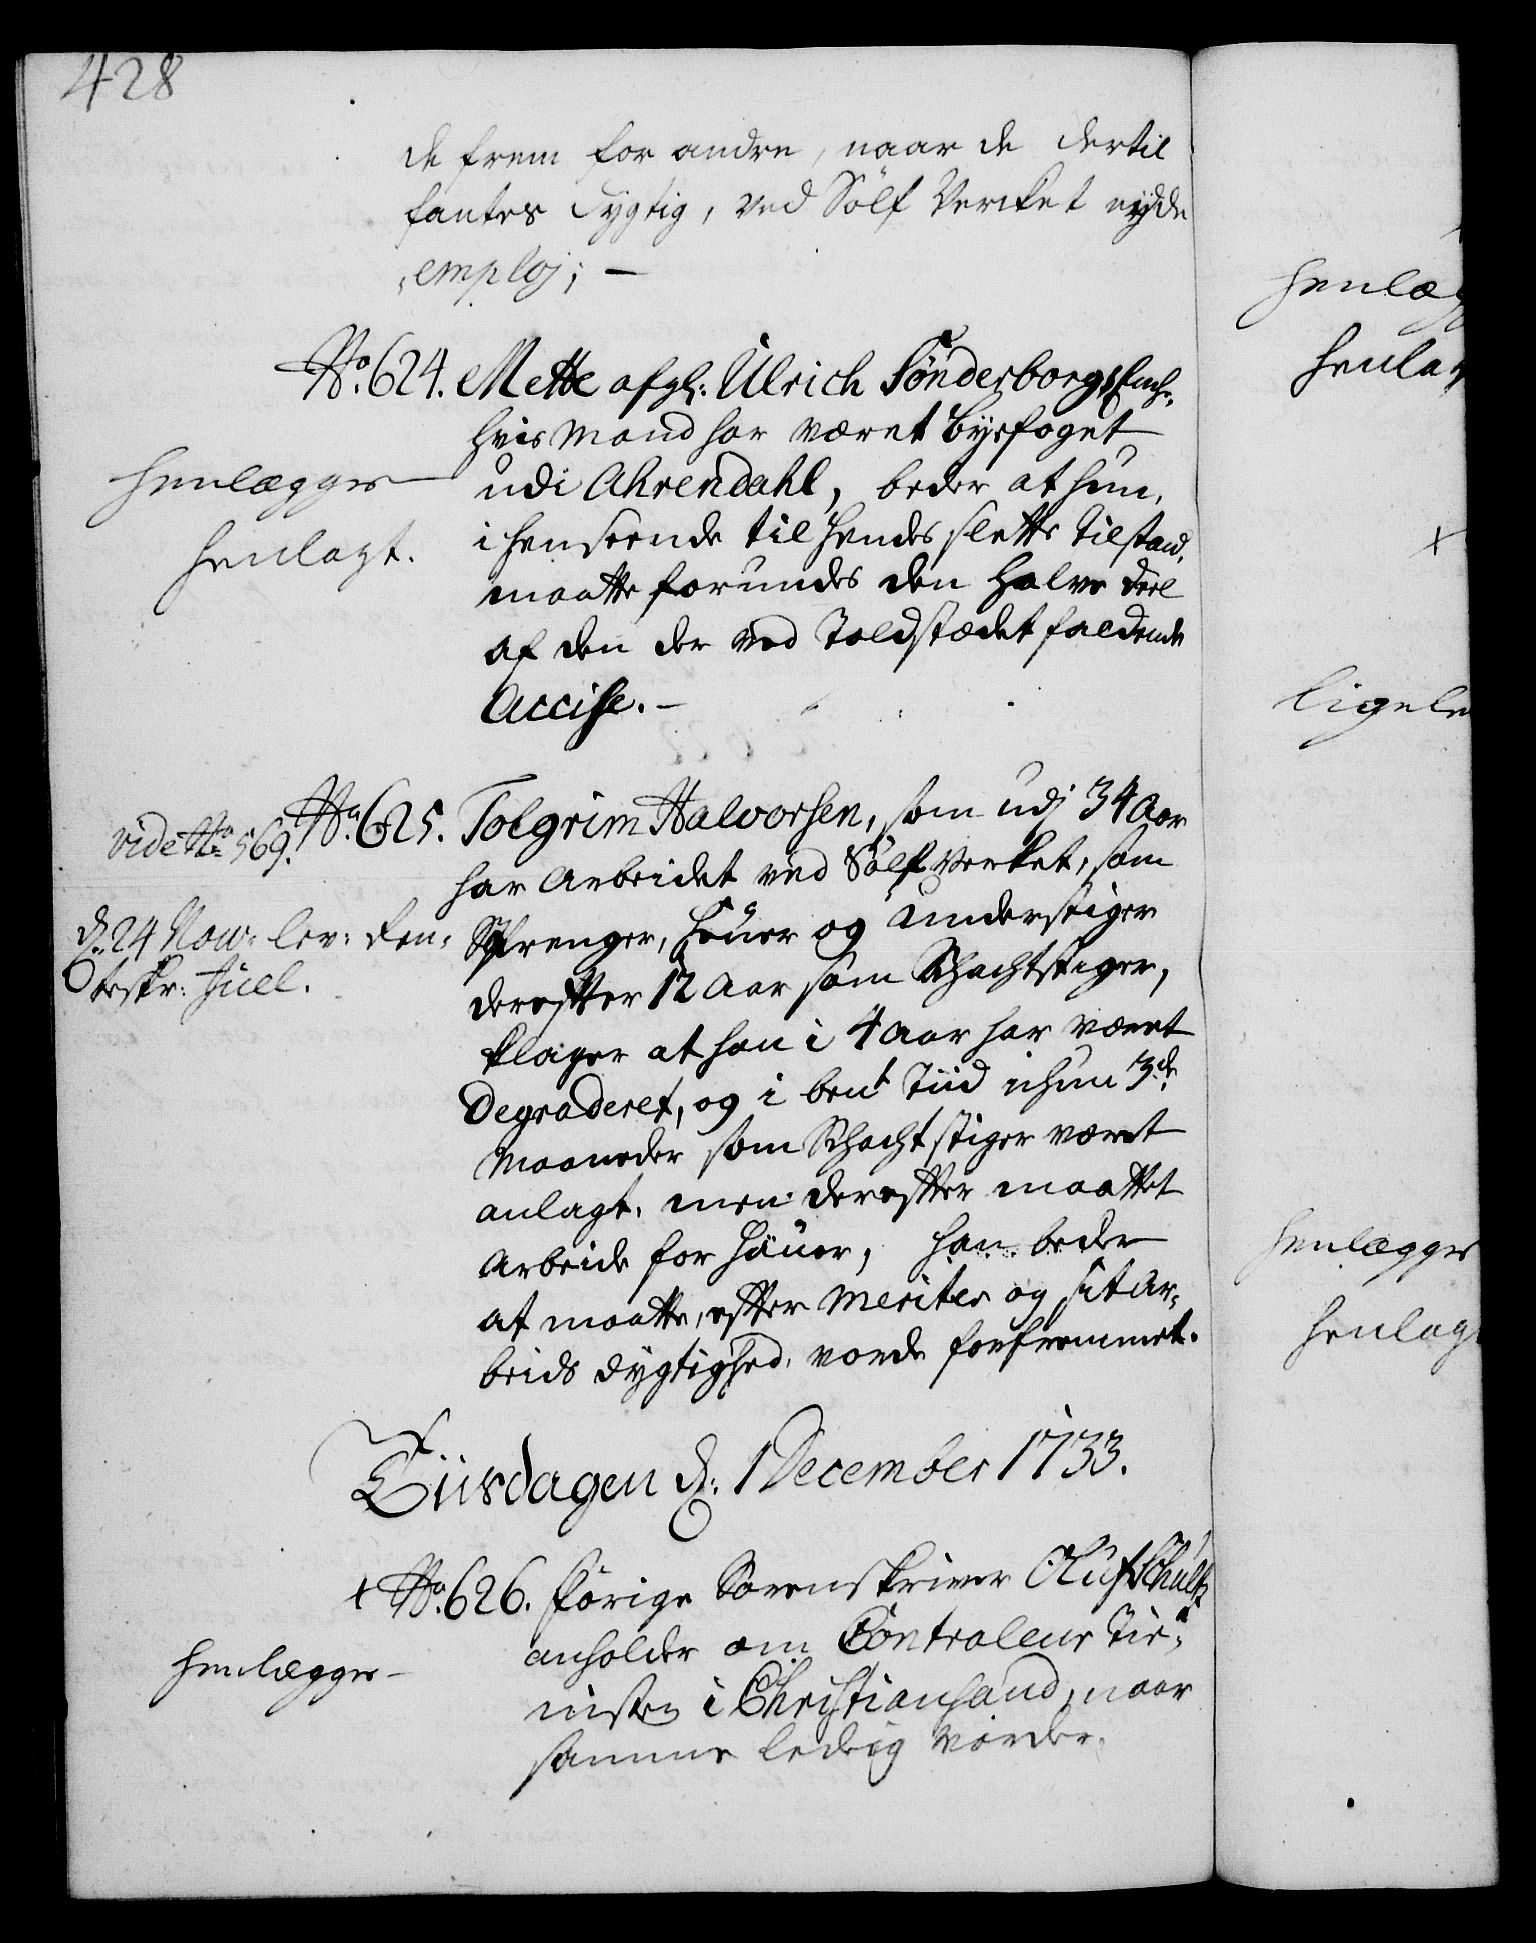 428
de frem for andre, naar de dertil
fantes dygtig, ved Sölf Vercket nyde
emploj; —
No. 624. Mette afgl: Ulrich Sønderborgs Enche,
hvis Mand har været byefoget
udi Ahrendahl, beder at hun,
i henseende til hendes slette Tilstand,
maatte forundes den halve deel
af den der ved Toldstædet faldende
Accise. —
henlægges
henlagt.
No. 625. Tolgrim Halvorsen, som udj 34 Aar
har Arbeidet ved Sölf Verket, som
Sprenger, Häuer og Understiger
derefter 12 Aar som Schachtstiger,
klager at han i 4 Aar har været
Degraderet, og i bent Tiid ichun 3de
Maaneder som Schachtstiger været
anlagt, men derefter maattet
Arbeide for Häuer, han beder
at maatte, efter Meriter og sit Ar-
beids dygtighed, vorde forfremmet.
vide No. 569.
d: 24 Nov: lev: Ren-
teskr: Juel.
Tiisdagen d: 1 December 1733.
+ No. 626. Forige Sorenskriver Oluf Schultz
anholder om Controleur Tie-
nisten i Christiansand, naar
samme ledig vorder.
henlægges —
henlæg
henlag
+
ligele
henlægges
henlag